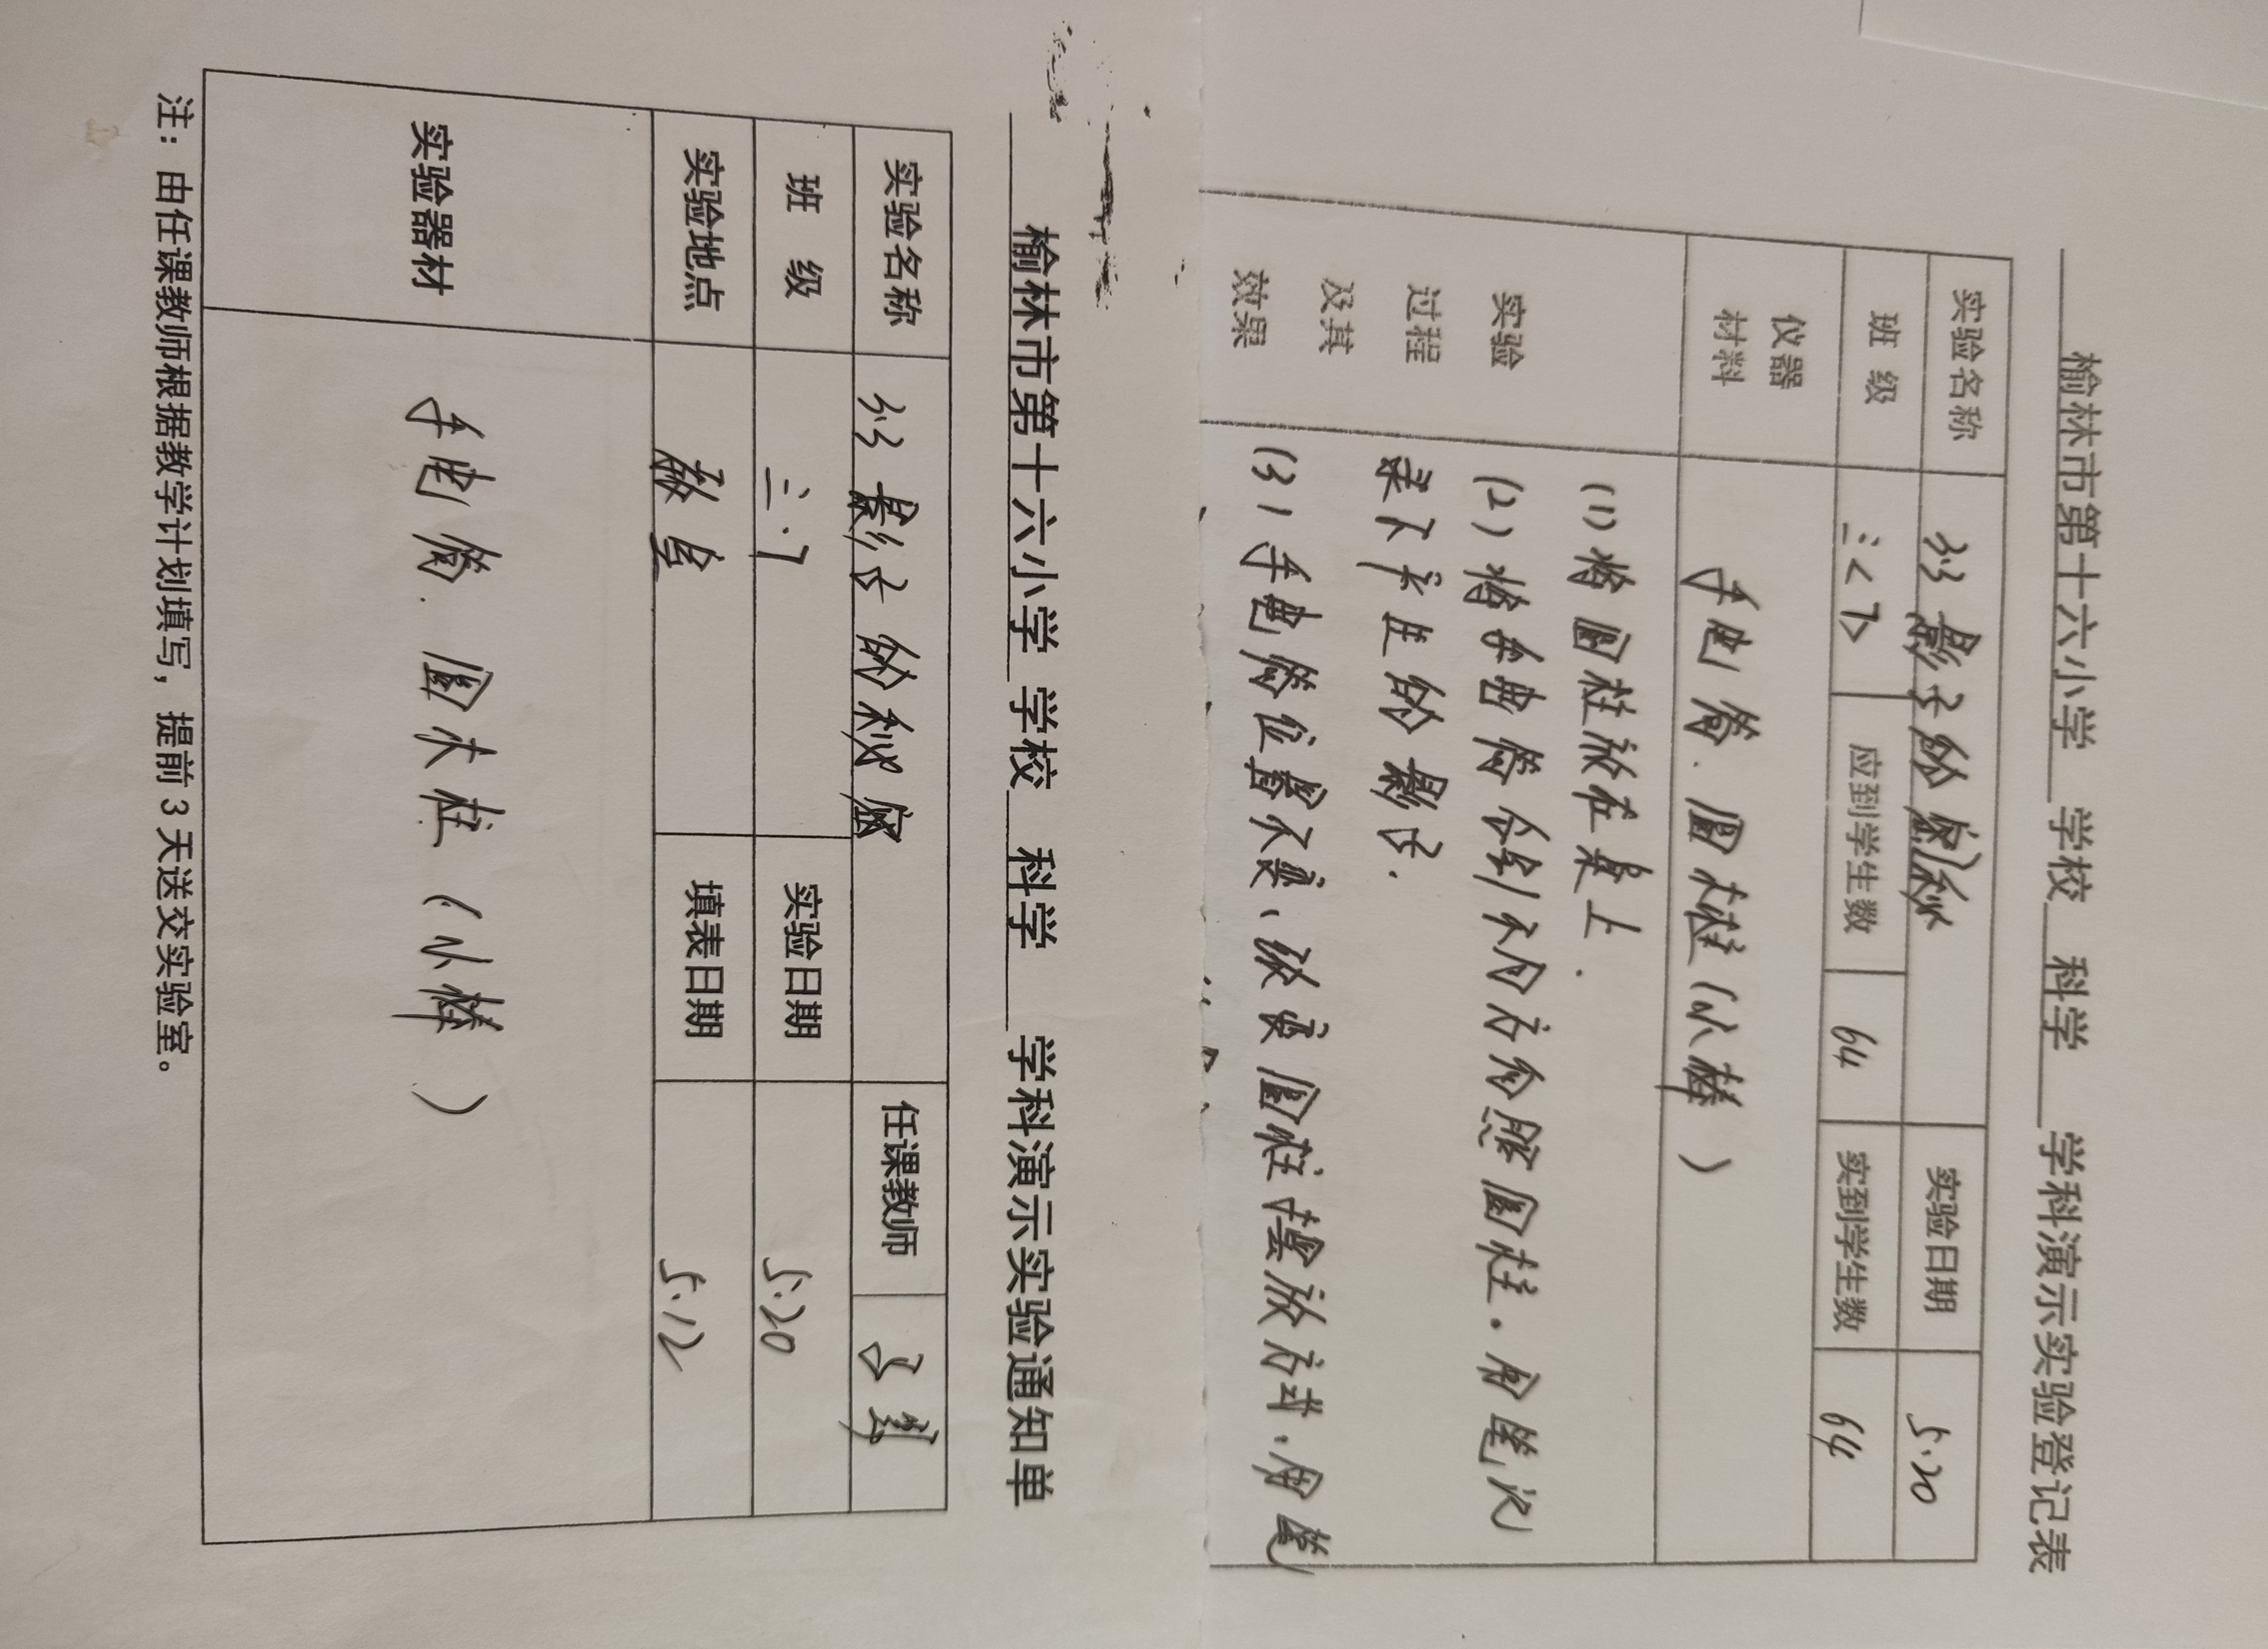 榆林市第十六小学 学校 科学 学科演示实验登记表
实验名称 影子的秘密 实验日期 5.20
班 级 三<7> 应到学生数 64 实到学生数 64
仪器
材料
手电筒.圆木柱(小棒)
实验
过程
及其
效果
(1)将圆柱放在桌上.
(2)将手电筒分别从不同方向照圆柱.用笔记
录下产生的影子.
(3)手电筒位置不变、改变圆柱摆放方式.用笔
榆林市第十六小学 学校 科学 学科演示实验通知单
实验名称 影子的秘密 任课教师
班 级 三.7 实验日期 5.20
实验地点 教室 填表日期 5.12
实验器材 手电筒.圆木柱(小棒)
注：由任课教师根据教学计划填写，提前3天送交实验室。